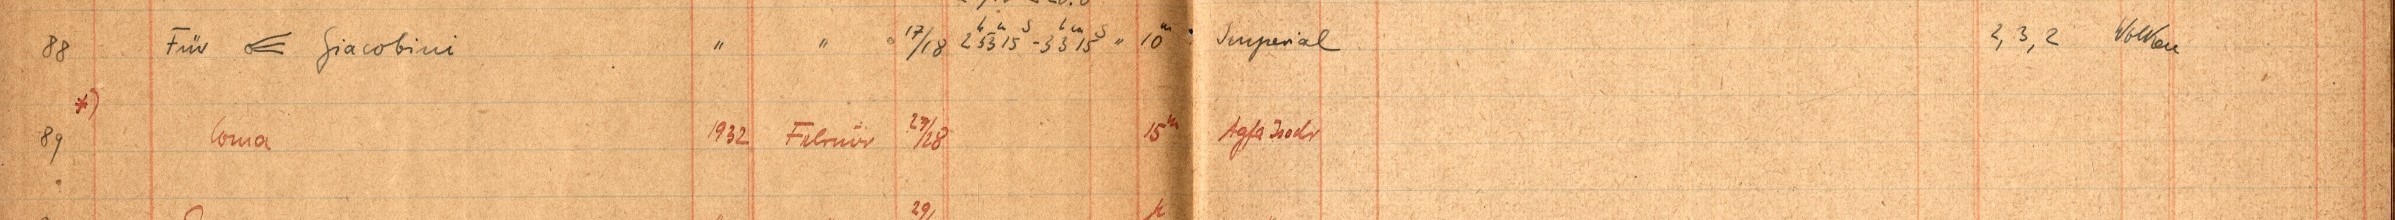 88 Für Giacobini " " 17/18 2 53 15 - 3 3 15 " 10m Imperial 2, 3, 2 Wolken
*)
89 Coma 1932 Februar 27/28 15m Agfa Isochr
29/